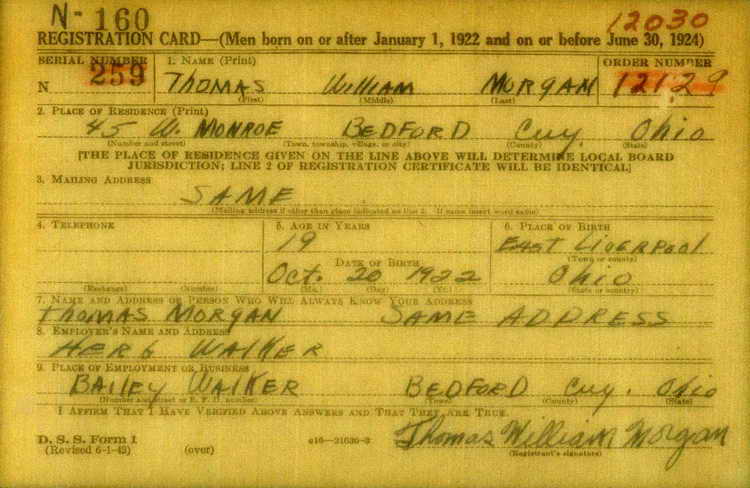 N-160 12030
REGISTRATION CARD—(Men born on or after January 1, 1922 and on or before June 30, 1924)
SERIAL NUMBER 1. NAME (Print) ORDER NUMBER
N 259 THOMAS WILLIAM MORGAN 12129
(First) (Middle) (Last)
2. PLACE OF RESIDENCE (Print)
45 W. MONROE BEDFORD Cuy. Ohio
(Number and street) (Town, township, village, or city) (County) (State)
[THE PLACE OF RESIDENCE GIVEN ON THE LINE ABOVE WILL DETERMINE LOCAL BOARD
JURISDICTION; LINE 2 OF REGISTRATION CERTIFICATE WILL BE IDENTICAL]
3. MAILING ADDRESS
SAME
(Mailing address if other than place indicated on line 2. If same insert word same)
4. TELEPHONE 5. AGE IN YEARS 6. PLACE OF BIRTH
19 EAST LIVERPOOL
DATE OF BIRTH (Town or county)
Oct. 20 1922 Ohio
(Exchange) (Number) (Mo.) (Day) (Yr.) (State or country)
7. NAME AND ADDRESS OF PERSON WHO WILL ALWAYS KNOW YOUR ADDRESS
THOMAS MORGAN SAME ADDRESS
8. EMPLOYER'S NAME AND ADDRESS
HERB WALKER
9. PLACE OF EMPLOYMENT OR BUSINESS
BAILEY WALKER BEDFORD Cuy. Ohio
(Number and street or R. F. D. number) (Town) (County) (State)
I AFFIRM THAT I HAVE VERIFIED ABOVE ANSWERS AND THAT THEY ARE TRUE.
D. S. S. Form 1 Thomas William Morgan
(Revised 6-1-42) (over) (Registrant's signature)